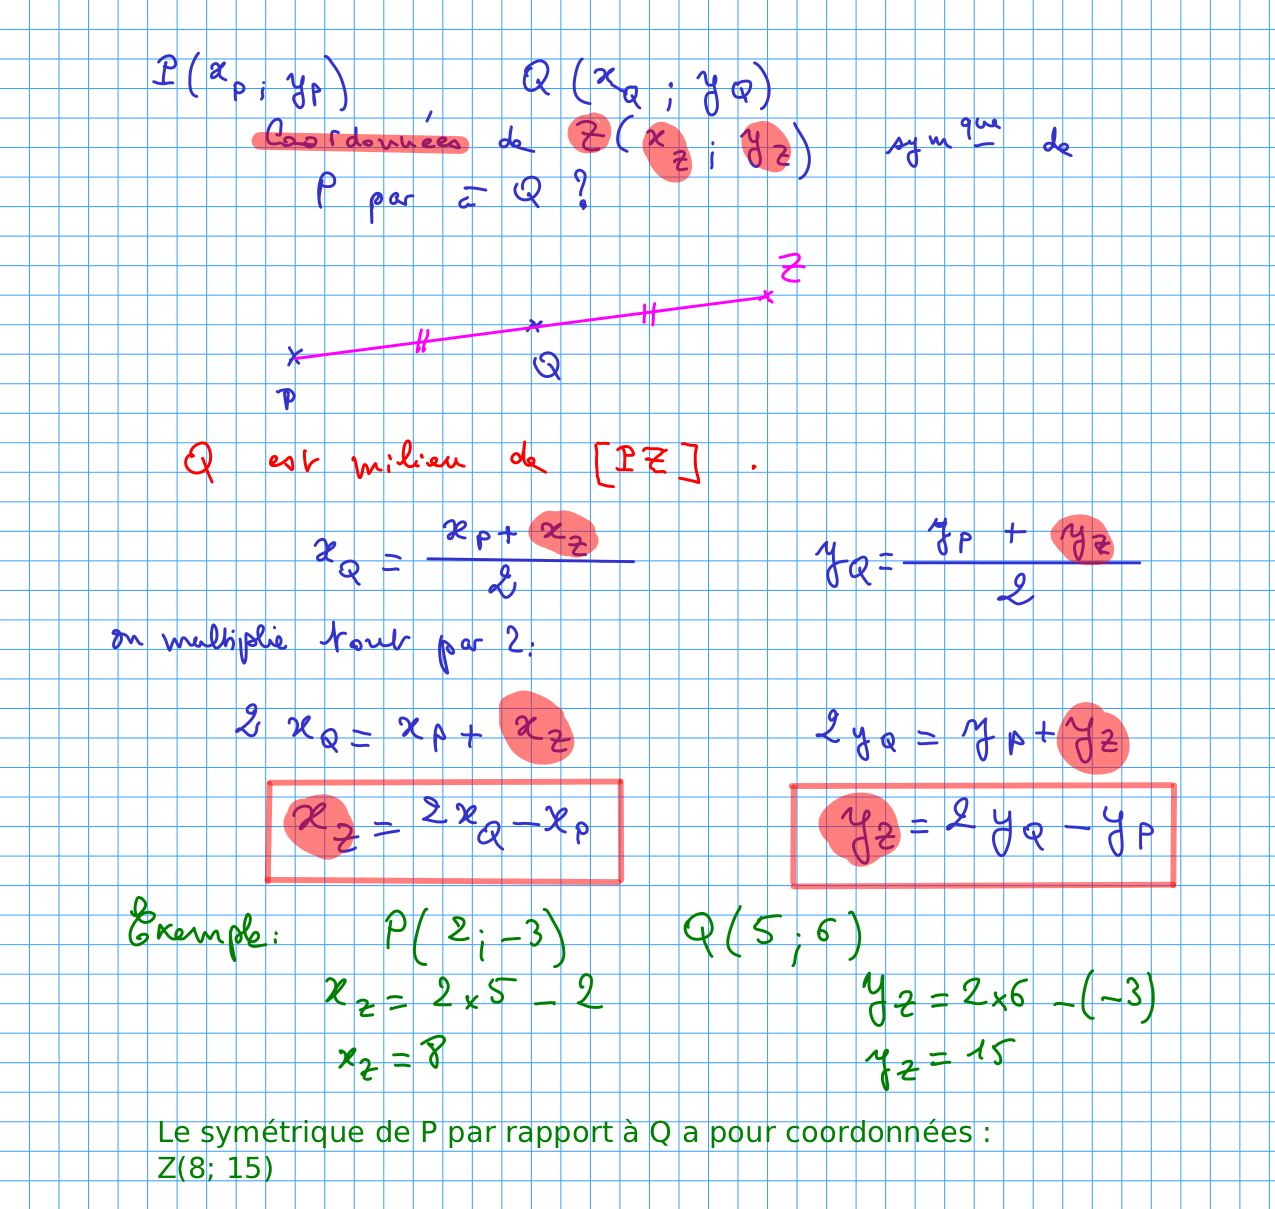 P(x_P ; y_P) Q(x_Q ; y_Q)
Coordonnées de Z(x_Z ; y_Z) sym^que de
P par à Q ?
Z
Q
P
Q est milieu de [PZ].
x_Q = (x_P + x_Z)/2 y_Q = (y_P + y_Z)/2
on multiplie tout par 2:
2 x_Q = x_P + x_Z 2 y_Q = y_P + y_Z
x_Z = 2 x_Q - x_P y_Z = 2 y_Q - y_P
Exemple: P(2 ; -3) Q(5 ; 6)
x_Z = 2 × 5 - 2 y_Z = 2 × 6 - (-3)
x_Z = 8 y_Z = 15
Le symétrique de P par rapport à Q a pour coordonnées :
Z(8; 15)